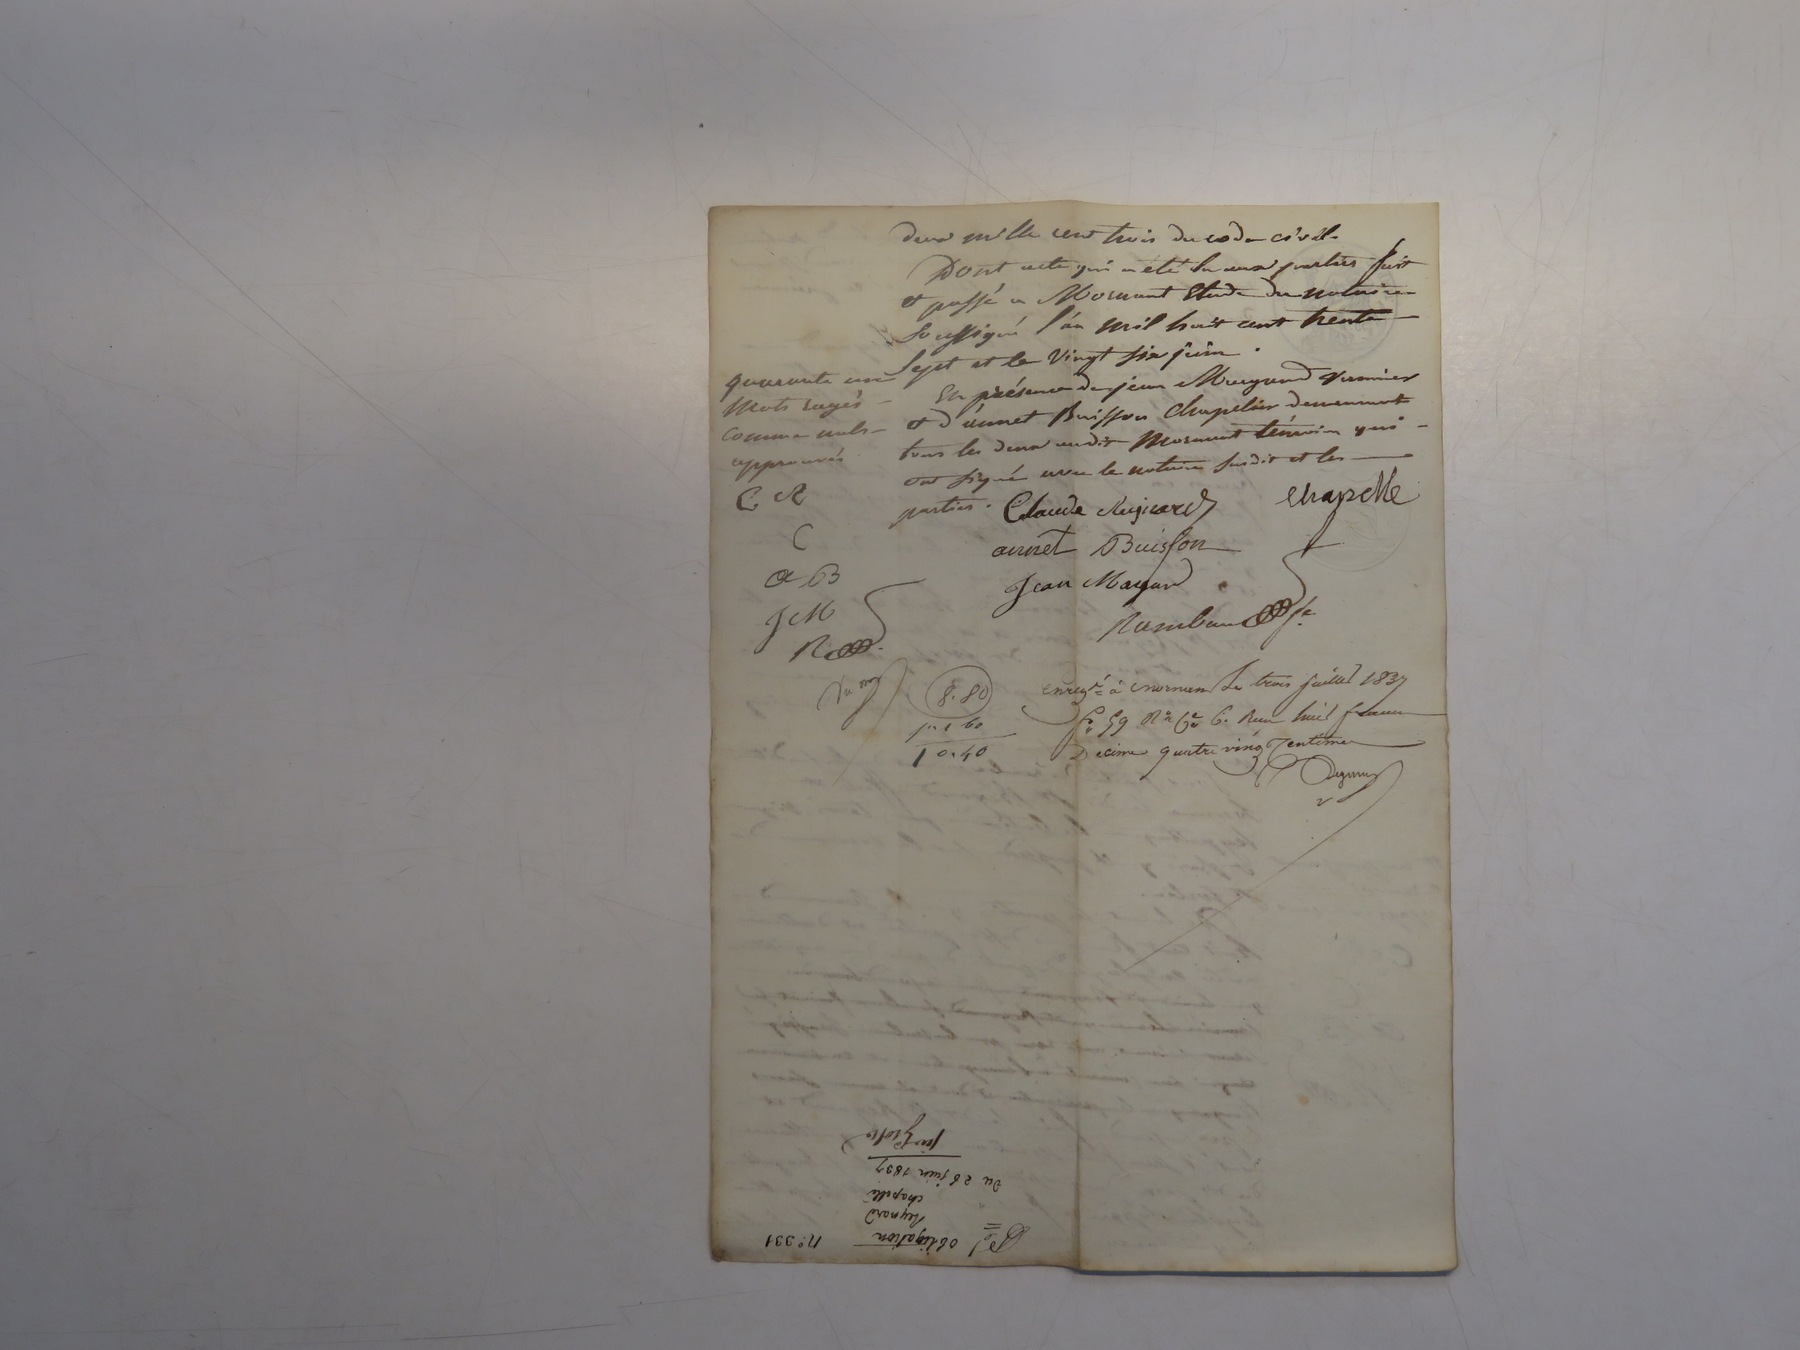 deux mille cent trois du code civil.
Dont acte qui a été lu aux parties fait
et passé a Mornant Etude du notaire
soussigné l'an mil huit cent trente
sept et le vingt six juin.
En présence de jean Mangard
et d'annet Buisson chapelier demeurant
tous les deux audit Mornant témoins qui
ont signé avec le notaire susdit et les
parties.
quarante un
mots rayés
comme nuls
approuvés
C R
C
a B
J M
R
Claude Reynard chapelle
annet Buisson
Jean
Rambaud
8.80
1.60
10.40
enreg.té à mornan le trois juillet 1837
f.o 59 R.o C.e 6. Reçu huit francs
Decime quatre vingt centimes
n.o 331
obligation
Reynard
chapelle
Du 26 juin 1837